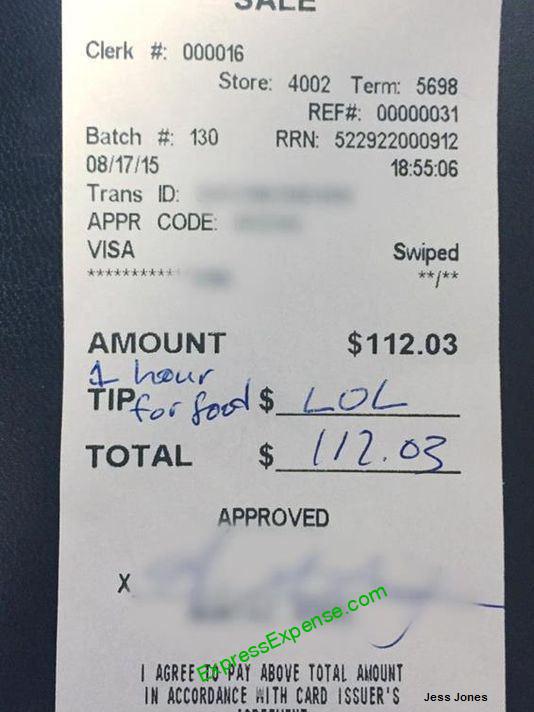 SALE
Clerk #: 000016
Store: 4002 Term: 5698
REF#: 00000031
Batch #: 130 RRN: 522922000912
08/17/15 18:55:06
Trans ID:
APPR CODE:
VISA Swiped
********** **/**
AMOUNT $112.03
1 hour
for food
TIP $ LOL
TOTAL $ 112.03
APPROVED
X
ExpressExpense.com
I AGREE TO PAY ABOVE TOTAL AMOUNT
IN ACCORDANCE WITH CARD ISSUER'S
AGREEMENT
Jess Jones